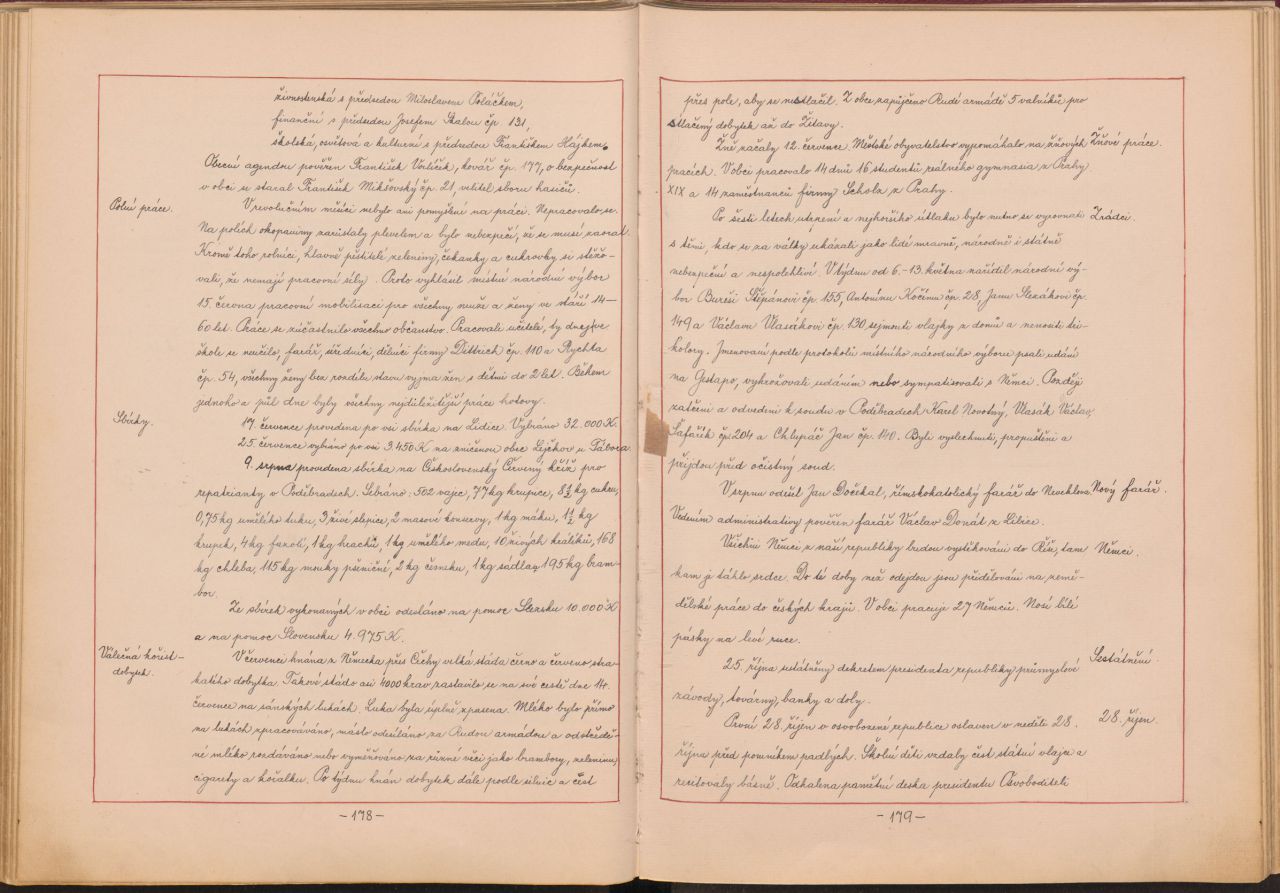 živnostenská s předsedou Miloslavem Poláčkem,
finanční s předsedou Josefem Skalou čp. 121,
školská, osvětová a kulturní s předsedou Františkem Hájkem.
Obecní agendou pověřen František Vrlíček, kovář čp. 177, o bezpečnost
v obci se staral František Mikšovský čp. 21, velitel sboru hasičů.
Polní práce.
V revolučním měsíci nebylo ani pomyšlení na práci. Nepracovalo se.
Na polích okopaniny zarůstaly plevelem a bylo nebezpečí, že se musí zaorat.
Kromě toho rolníci, hlavně pěstitelé zeleniny, čekanky a cukrovky si stěžo-
vali, že nemají pracovní síly. Proto vyhlásil místní národní výbor
15. června pracovní mobilisaci pro všechny muže a ženy ve stáří 14-
60 let. Práce se zúčastnilo všechno občanstvo. Pracovali učitelé, ty dny ve
škole se neučilo, farář, úředníci, dělníci firmy Dittrich čp. 110 a Rychta
čp. 54, všechny ženy bez rozdílu stavu vyjma žen s dětmi do 2 let. Během
jednoho a půl dne byly všechny nejdůležitější práce hotovy.
Sbírky.
17. července provedena po vsi sbírka na Lidice. Vybráno 32.000 K.
25. července vybráno po vsi 3.450 K na zničenou obec Lejčkov u Tábora.
9. srpna provedena sbírka na Československý Červený kříž pro
repatrianty v Poděbradech. Sebráno: 502 vajec, 77 kg krupice, 8 1/2 kg cukru,
0,75 kg umělého tuku, 3 živé slepice, 2 masové konservy, 1 kg máku, 1 1/2 kg
krupek, 4 kg fazolí, 1 kg hrachu, 1 kg umělého medu, 10 živých králíků, 168
kg chleba, 115 kg mouky pšeničné, 2 kg česneku, 1 kg sádla a 195 kg bram-
bor.
Ze sbírek vykonaných v obci odesláno na pomoc Slezsku 10.000 K
a na pomoc Slovensku 4.975 K.
Válečná kořist-
dobytek.
V červenci hnána z Německa přes Čechy velká stáda černo a červeno stra-
katého dobytka. Takové stádo asi 4000 krav zastavilo se na své cestě dne 14.
července na sánských lukách. Luka byla úplně spasena. Mléko bylo přímo
na lukách zpracováváno, máslo odesíláno za Rudou armádou a odstředě-
né mléko rozdáváno nebo vyměňováno za různé věci jako brambory, zeleninu,
cigarety a kořalku. Po týdnu hnán dobytek dále podle silnic a část
-178-
přes pole, aby se nestlačil. Z obce zapůjčeno Rudé armádě 5 valníků pro
stlačený dobytek až do Žitavy.
Žně začaly 12. července. Městské obyvatelstvo vypomáhalo na žňových
Žňové práce.
pracích. V obci pracovalo 14 dnů 16 studentů reálného gymnasia z Prahy
XIX a 14 zaměstnanců firmy Scholz z Prahy.
Po šesti letech utrpení a nejhoršího útlaku bylo nutno se vyrovnati
Zrádci
s těmi, kdo se za války ukázali jako lidé mravně, národně i státně
nebezpeční a nespolehliví. V týdnu od 6.-13. května nařídil národní vý-
bor Bureši Štěpánovi čp. 155, Antonínu Kočímu čp. 28, Janu Slezákovi čp.
149 a Václavu Vlasákovi čp. 130 sejmouti vlajky z domů a nenositi tri-
kolory. Jmenovaní podle protokolů místního národního výboru psali udání
na Gestapo, vyhrožovali udáním nebo sympatisovali s Němci. Později
zatčeni a odvedeni k soudu v Poděbradech Karel Novotný, Vlasák Václav,
Šafařík čp. 204 a Chlupáč Jan čp. 140. Byli vyslechnuti, propuštěni a
přijdou před očistný soud.
V srpnu odešel Jan Dočekal, římskokatolický farář do Neveklova.
Nový farář.
Vedením administrativy pověřen farář Václav Donát z Libice.
Všichni Němci z naší republiky budou vystěhováni do Říše, tam
Němci.
kam je táhlo srdce. Do té doby než odejdou jsou přidělováni na země-
dělské práce do českých krajů. V obci pracuje 27 Němců. Nosí bílé
pásky na levé ruce.
25. října sestátněny dekretem presidenta republiky průmyslové
Sestátnění.
závody, továrny, banky a doly.
První 28. říjen v osvobozené republice oslaven v neděli 28.
28. říjen.
října před pomníkem padlých. Školní děti vzdaly čest státní vlajce a
recitovaly básně. Odhalena pamětní deska presidentu Osvoboditeli
-179-